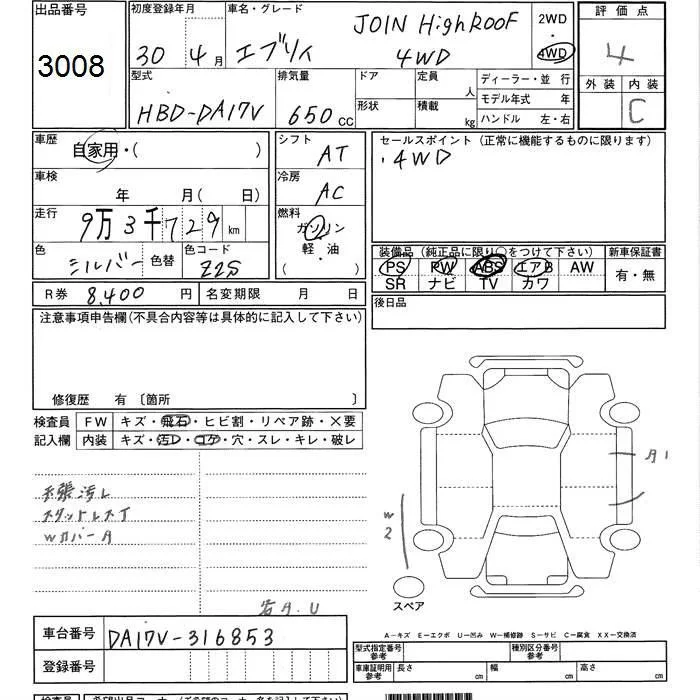 出品番号
3008
初度登録年月
30 4 月
車名・グレード
エブリィ
JOIN HighROOF
4WD
2WD
4WD
評価点
4
外装 内装
C
型式
HBD-DA17V
排気量
650 CC
ドア
形状
定員
人
積載
kg
ディーラー・並行
モデル年式 年
ハンドル 左・右
車歴
自家用・( )
シフト
AT
セールスポイント (正常に機能するものに限ります)
・4WD
車検
年 月(日)
冷房
AC
走行
9万3千729 km
燃料
ガソリン
軽・油
( )
色
シルバー
色替
色コード
Z2S
装備品 (純正品に限り○をつけて下さい)
PS PW ABS エアB AW
SR ナビ TV カワ
新車保証書
有・無
R券 8,400 円
名変期限 月 日
後日品
注意事項申告欄(不具合内容等は具体的に記入して下さい)
修復歴 有〔箇所 〕
検査員
記入欄
FW キズ・飛石・ヒビ割・リペア跡・×要
内装 キズ・汚レ・コゲ・穴・スレ・キレ・破レ
天張汚レ
WカバーA
各A.U
W2
A1
スペア
車台番号 DA17V-316853
登録番号
A－キズ E－エクボ U－凹み W－補修跡 S－サビ C－腐食 XX－交換済
型式指定番号
参考
種別区分番号
参考
車庫証明用
参考
長さ cm
幅 cm
高さ cm